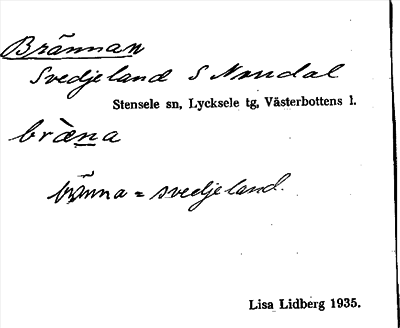 Brännan
Svedjeland S Nondal
Stensele sn, Lycksele tg, Västerbottens l.
bræ̀na
bränna = svedjeland.
Lisa Lidberg 1935.